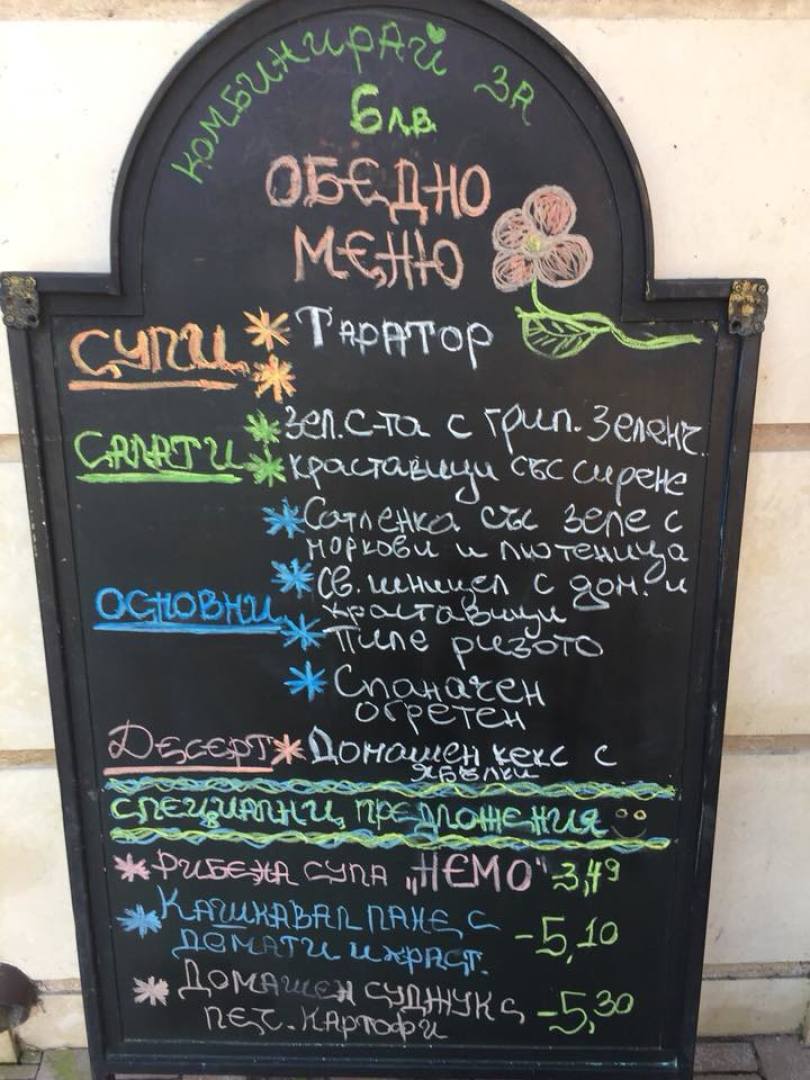 КОМБИНИРАЙ ЗА
6лв.
ОБЕДНО
МЕНЮ
СУПИ * Таратор
*
САЛАТИ * Зел. с-та с грил. Зеленч.
* Краставици със сирене
* Сотленка със зеле с
моркови и лютеница
* Св. шницел с дом. и
краставици
ОСНОВНИ * Пиле ризото
* Спаначен
огретен
ДЕСЕРТ * Домашен кекс с
ябълки
СПЕЦИАЛНИ ПРЕДЛОЖЕНИЯ
* РИБЕНА СУПА „НЕМО“ 3,49
* КАШКАВАЛ ПАНЕ С
ДОМАТИ И КРАСТ. -5,10
* ДОМАШЕН СУДЖУК С
ПЕЧ. КАРТОФИ -5,30